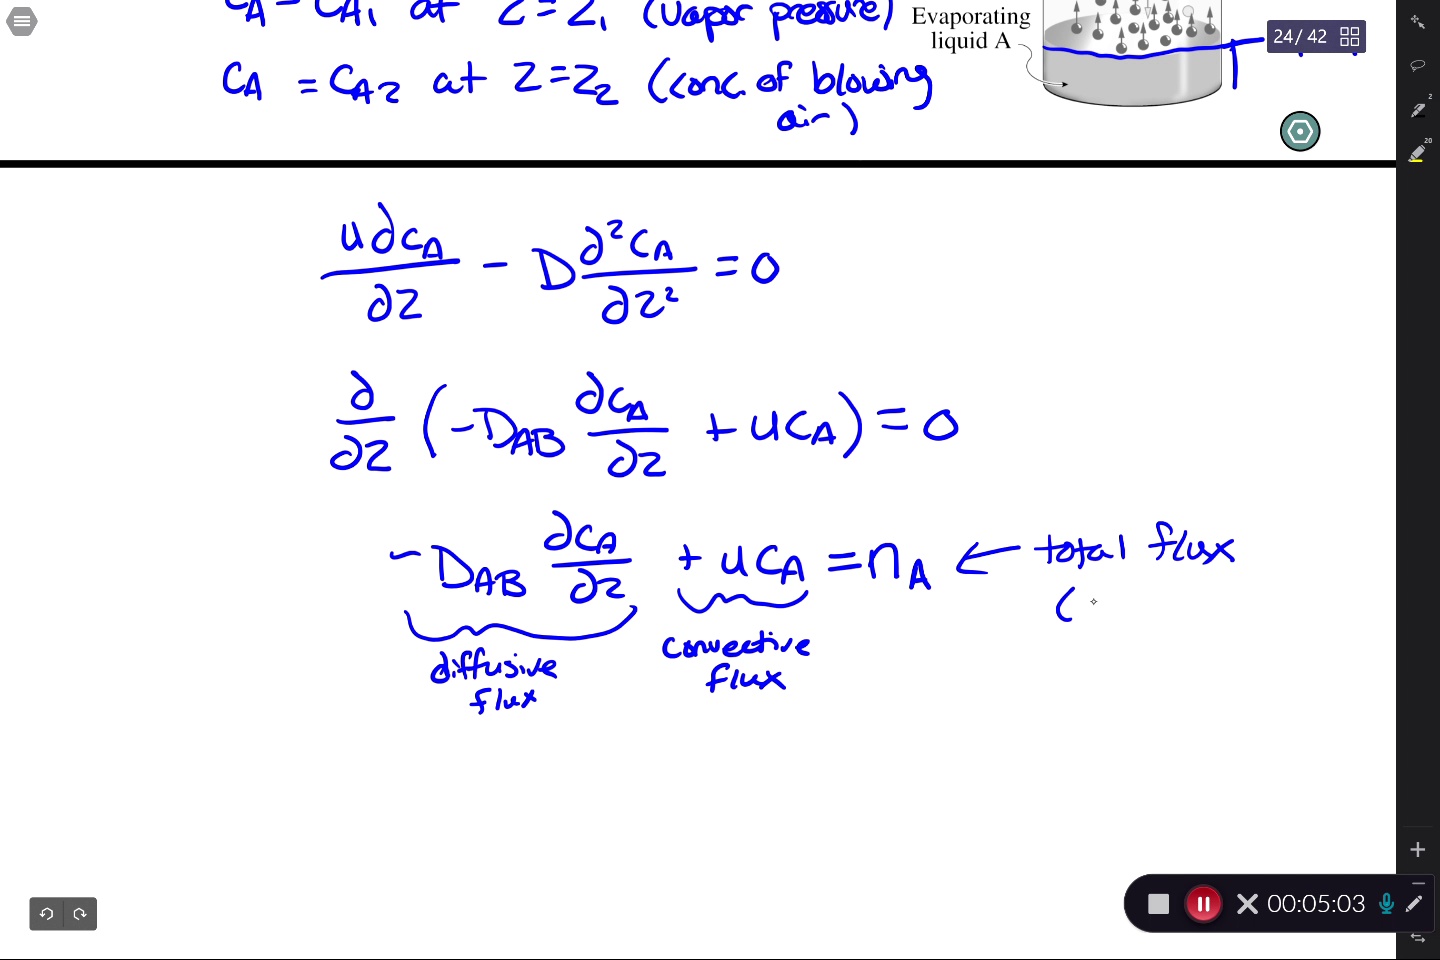 C_A = C_A1 at z = z_1 (vapor pressure)
C_A = C_A2 at z = z_2 (conc. of blowing
air)
Evaporating
liquid A
24/ 42
2
20
u∂C_A/∂z - D ∂²C_A/∂z² = 0
∂/∂z (-D_AB ∂C_A/∂z + uC_A) = 0
-D_AB ∂C_A/∂z + uC_A = n_A ← total flux
(
diffusive
flux
convective
flux
00:05:03